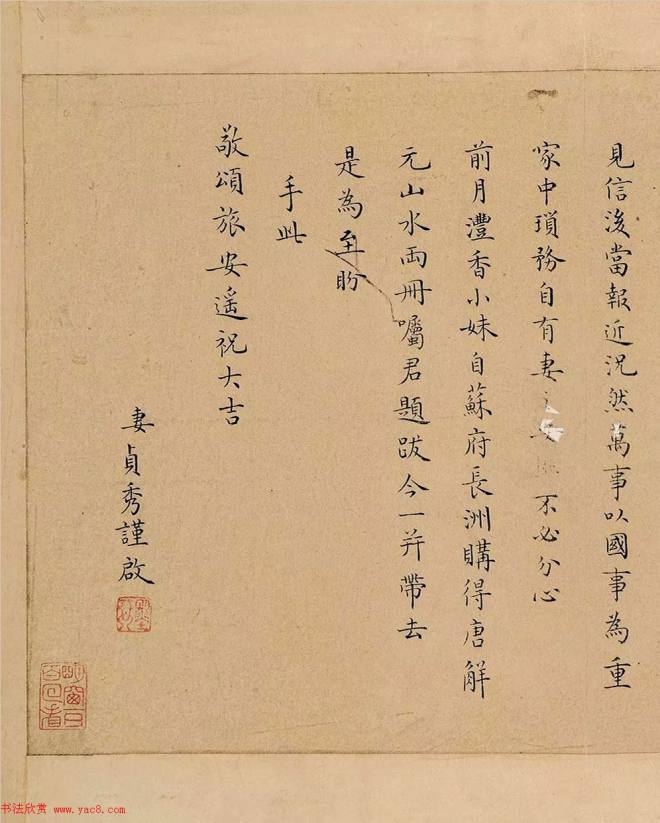 見信後當報近況然萬事以國事為重
家中瑣務自有妻 不必分心
前月灃香小妹自蘇府長洲購得唐解
元山水兩冊囑君題跋今一并帶去
是為至盼
手此
敬頌旅安遥祝大吉
妻貞秀謹啟
书法欣赏 www.yac8.com